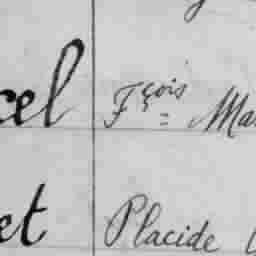 cel Fçois = Ma
et Placide